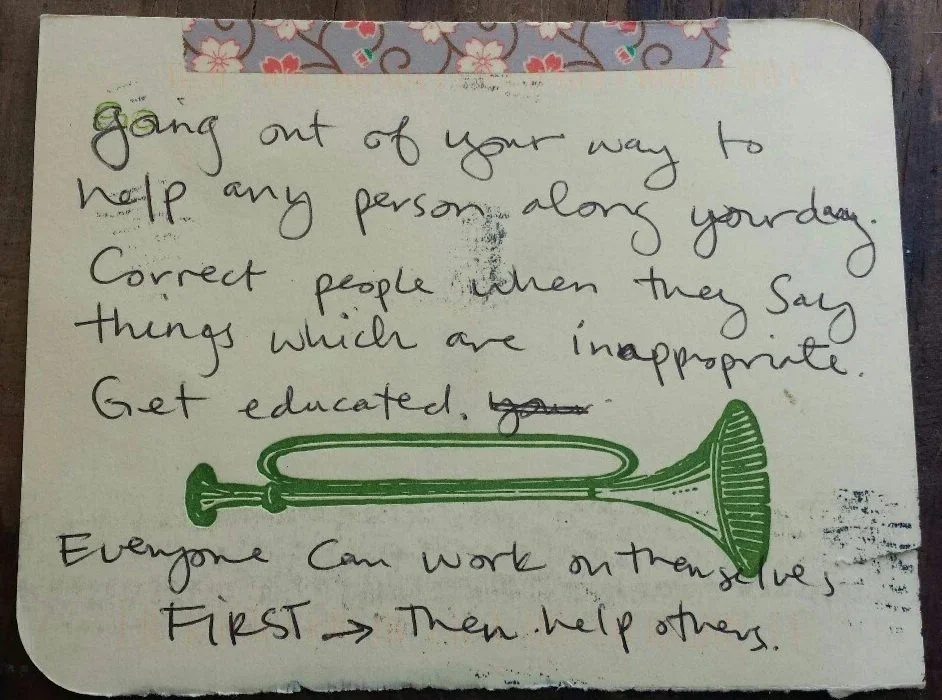 going out of your way to
help any person along your day.
Correct people when they say
things which are inappropriate.
Get educated. your
Everyone can work on themselves
FIRST → Then help others.